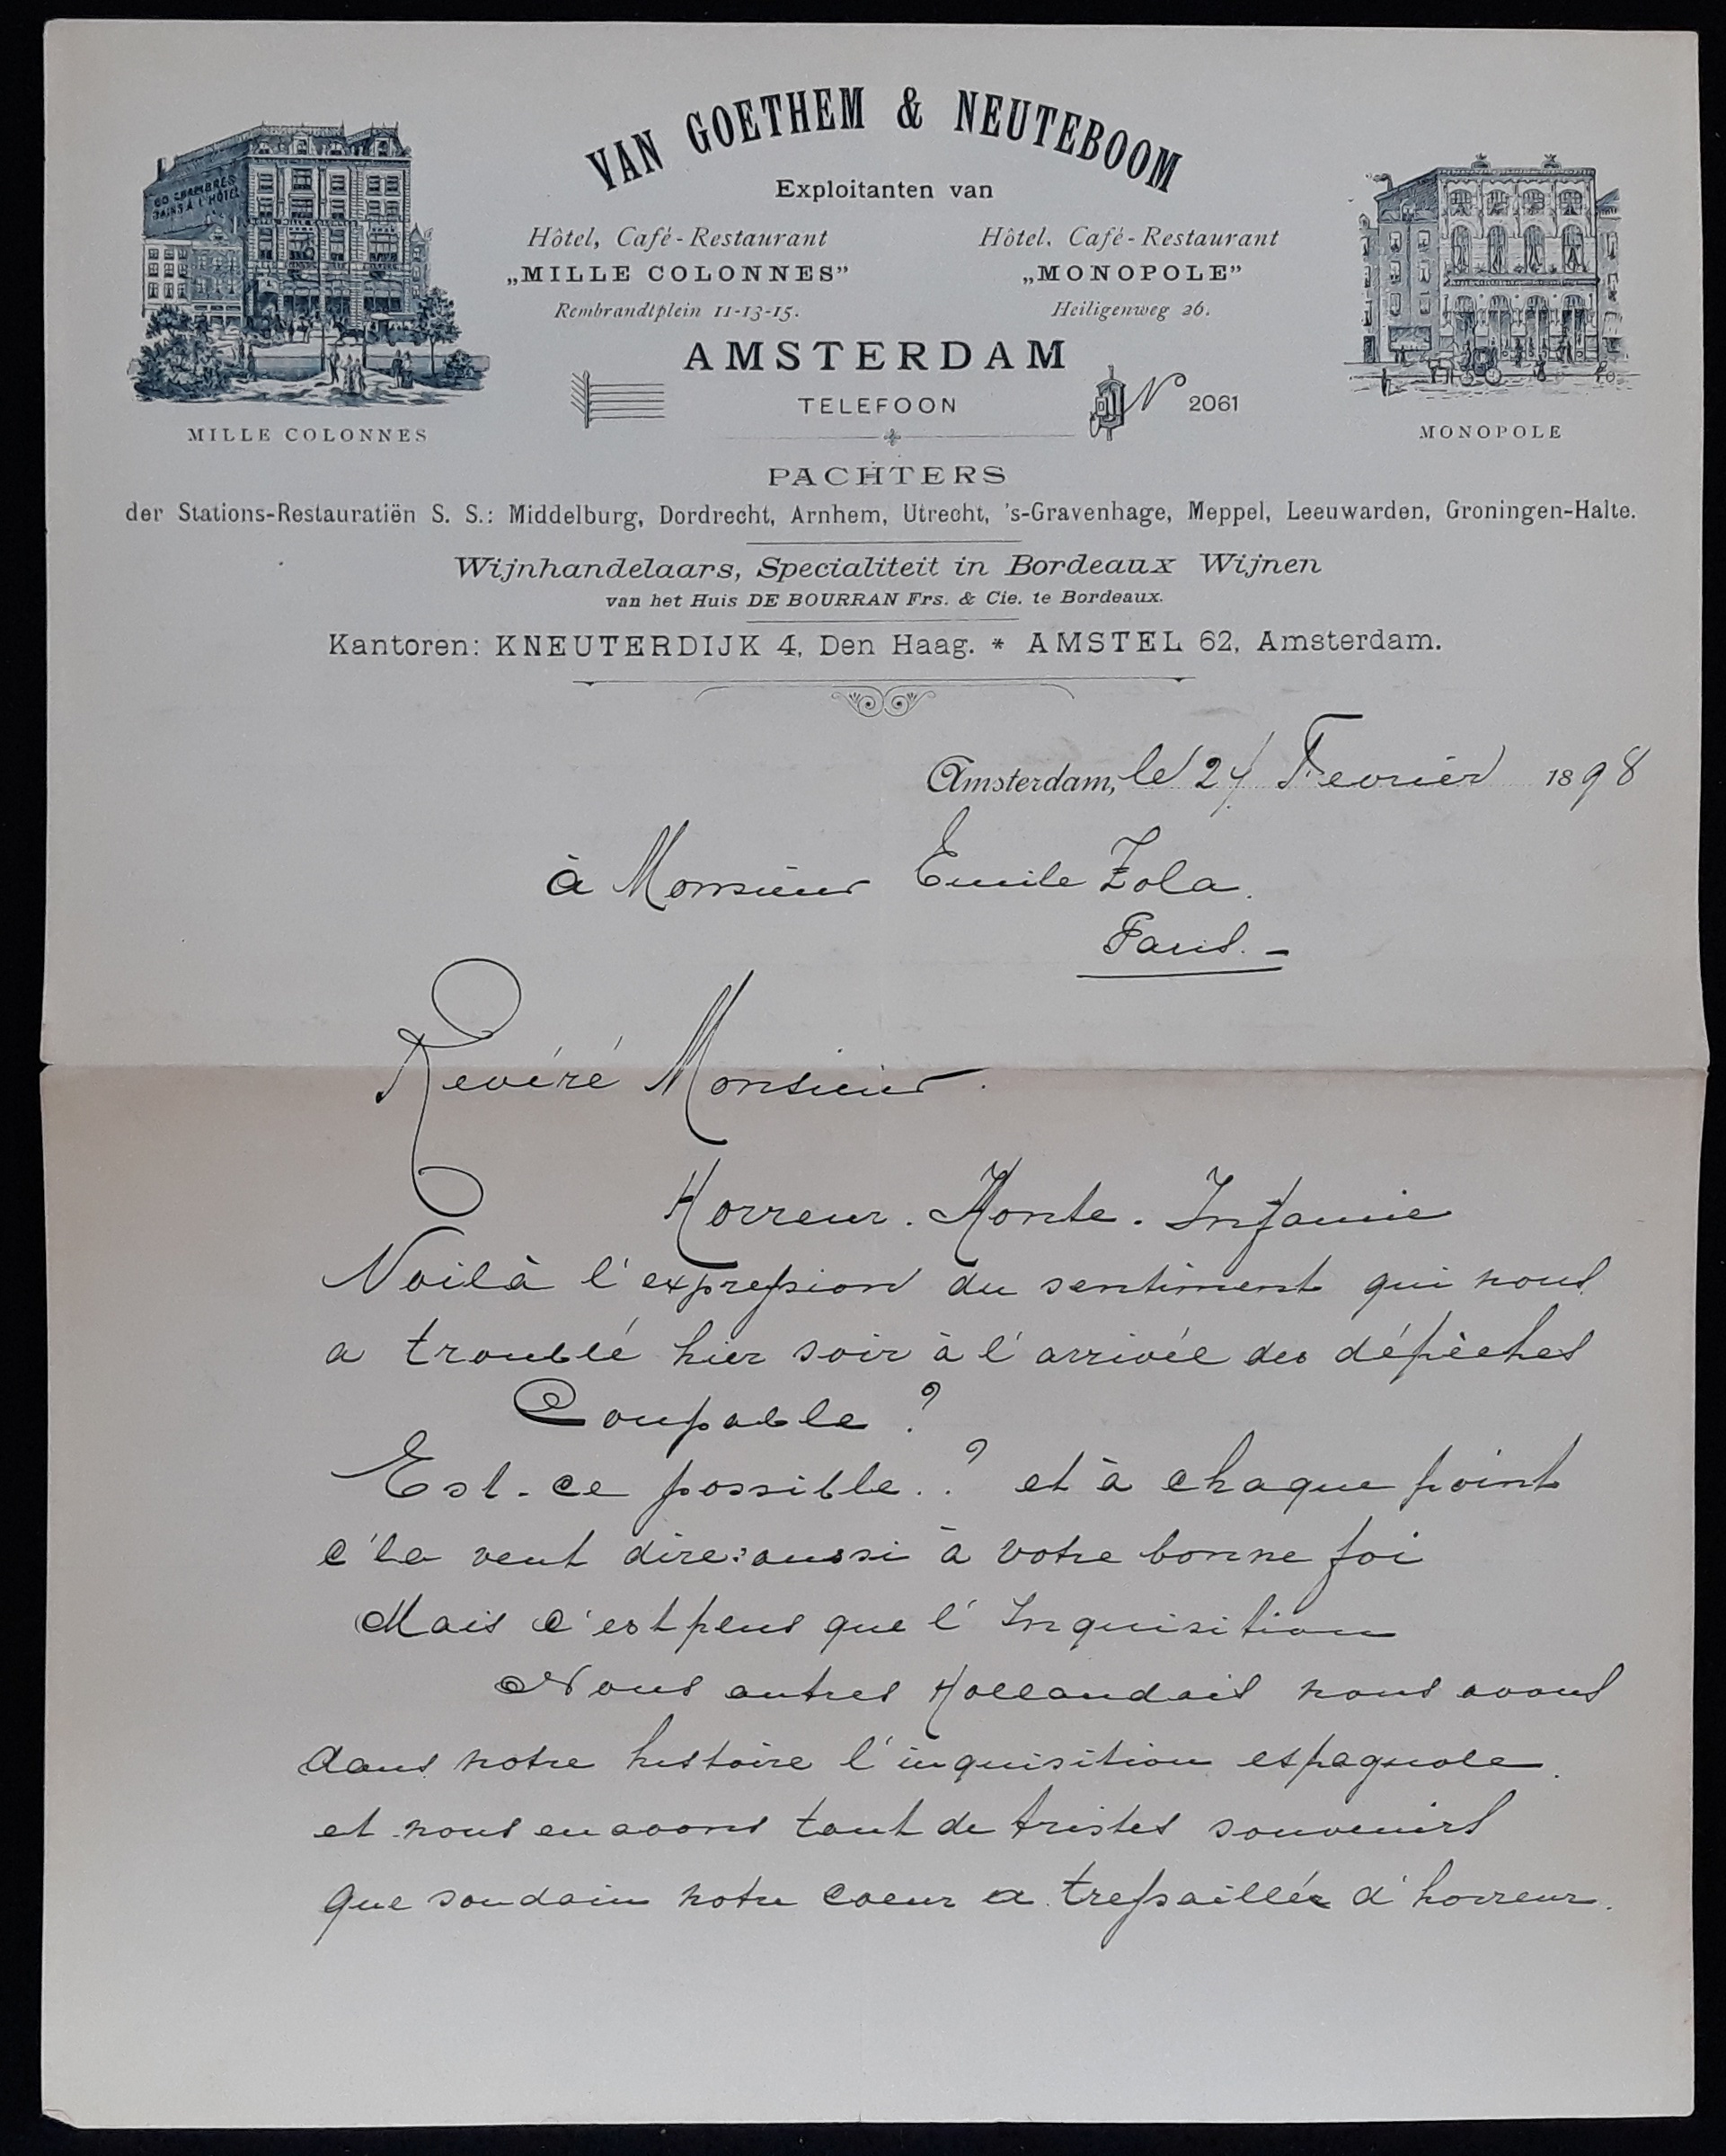 VAN GOETHEM & NEUTEBOOM
Exploitanten van
Hôtel, Café-Restaurant
„MILLE COLONNES”
Rembrandtplein 11-13-15.
Hôtel, Café-Restaurant
„MONOPOLE”
Heiligenweg 26.
60 CHAMBRES
BAINS À L'HÔTEL
AMSTERDAM
TELEFOON
N 2061
MILLE COLONNES
MONOPOLE
PACHTERS
der Stations-Restauratiën S. S.: Middelburg, Dordrecht, Arnhem, Utrecht, 's-Gravenhage, Meppel, Leeuwarden, Groningen-Halte.
Wijnhandelaars, Specialiteit in Bordeaux Wijnen
van het Huis DE BOURRAN Frs. & Cie. te Bordeaux.
Kantoren: KNEUTERDIJK 4, Den Haag. * AMSTEL 62, Amsterdam.
Amsterdam, le 24 Fevrièr 1898
à Monsieur Emile Zola.
Paris. -
Revéré Monsieur.
Horreur. Honte. Infamie
Voilà l'expression du sentiment qui nous
a troublé hier soir à l'arrivée des dépèches
Coupable ?
Est-ce possible..? et à chaque point
c'la veut dire: aussi à votre bonne foi
Mais c'est plus que l'Inquisition
Nous autres Hollandais nous avons
dans notre histoire l'inquisition espagnole.
et nous en avons tant de tristes souvenirs
que soudain notre coeur a tressaillé d'horreur.